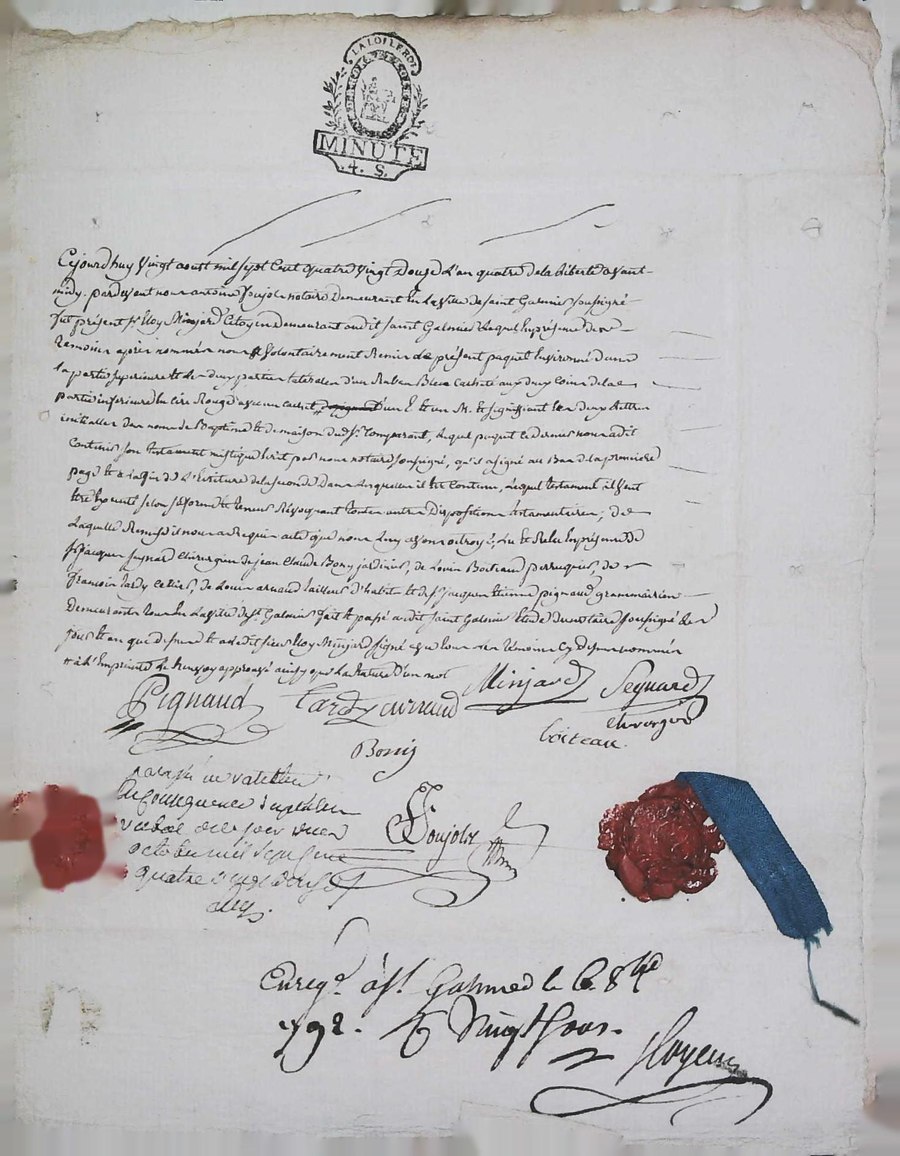 LA LOI LE ROI
MINUTE
4. S.
Cejourdhuy vingt aoust mil sept cent quatre vingt douze l'an quatre de la liberté avant
midy. pardevant nous antoine Poujols notaire demeurant en la ville de saint Galmier soussigné
fut présent sr. Eloy Minjard Citoyen demeurant audit saint Galmier lequel En présence des
temoins après nommés nous # volontairement Remis le présent paquet Environné dans
la partie superieure et les deux parties laterales d'un Ruban Bleu cacheté aux deux coins de la
partie inferieure En cire Rouge avec un cachet d'un E et un M. et signifiant les deux lettres
initialles des noms de Baptême et de maison dudit sr. Comparant, lequel paquet ce dernier nous a dit
contenir son testament mistique Ecrit par nous notaire soussigné, qu'il a signé au Bas de la premiere
page et à la fin de l'Ecriture de la seconde dans lesquelles il Est contenu, lequel testament il veut
Etre Executé selon sa forme et teneur Révoquant toutes autres Dispositions testamentaires, de
Laquelle Remise il nous a Requis acte que nous luy avons octroyé, lu et Relu En présence de
sr. jacques seynard chirurgien de jean Claude Bony jardinier, de Louis Boiteau perruquier, de
francois tardy cellier, de Louis arnaud tailleur d'habits et de sr. jacques Etienne pignaud grammairien
demeurants tous En la ville de st. Galmier fait et passé audit saint Galmier Etude du notaire soussigné les
jour et an que dessus et a ledit sieur Eloy Minjard signé avec tous les temoins Cy dessus nommés
# a l'Emprinte le Renvoy approuvé ainsy que la Rature d'un mot
Pignaud tardy arnaud Minjard Seynard
chirurgien
boiteau.
Bony
octobre mil sept cent
quatre vingt douze
Poujols
Enreg.é à st. Galmier le 6. 8bre
1792. R. vingt sous.